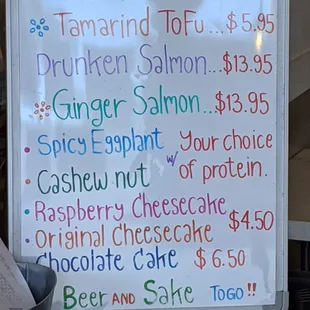 Tamarind ToFu...$5.95
Drunken Salmon...$13.95
Ginger Salmon...$13.95
Spicy Eggplant
Cashew nut
w/ Your choice
of protein.
Raspberry Cheesecake
Original Cheesecake
$4.50
Chocolate Cake $6.50
Beer AND Sake TOGO!!